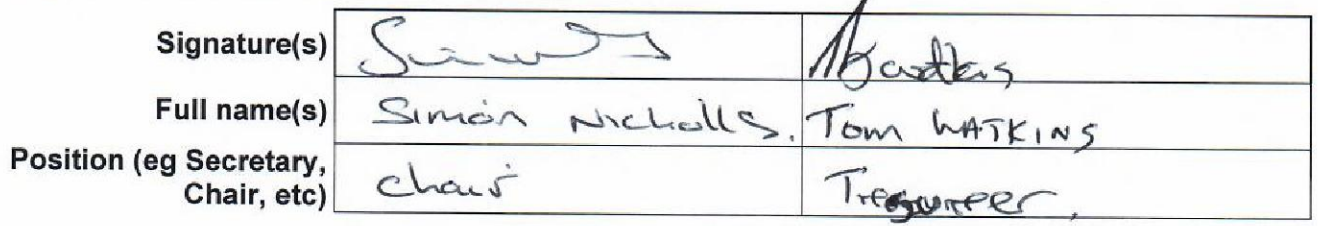 Signature(s)
Full name(s) Simon Nicholls. Tom WATKINS
Position (eg Secretary,
Chair, etc) Chair Treasurer.